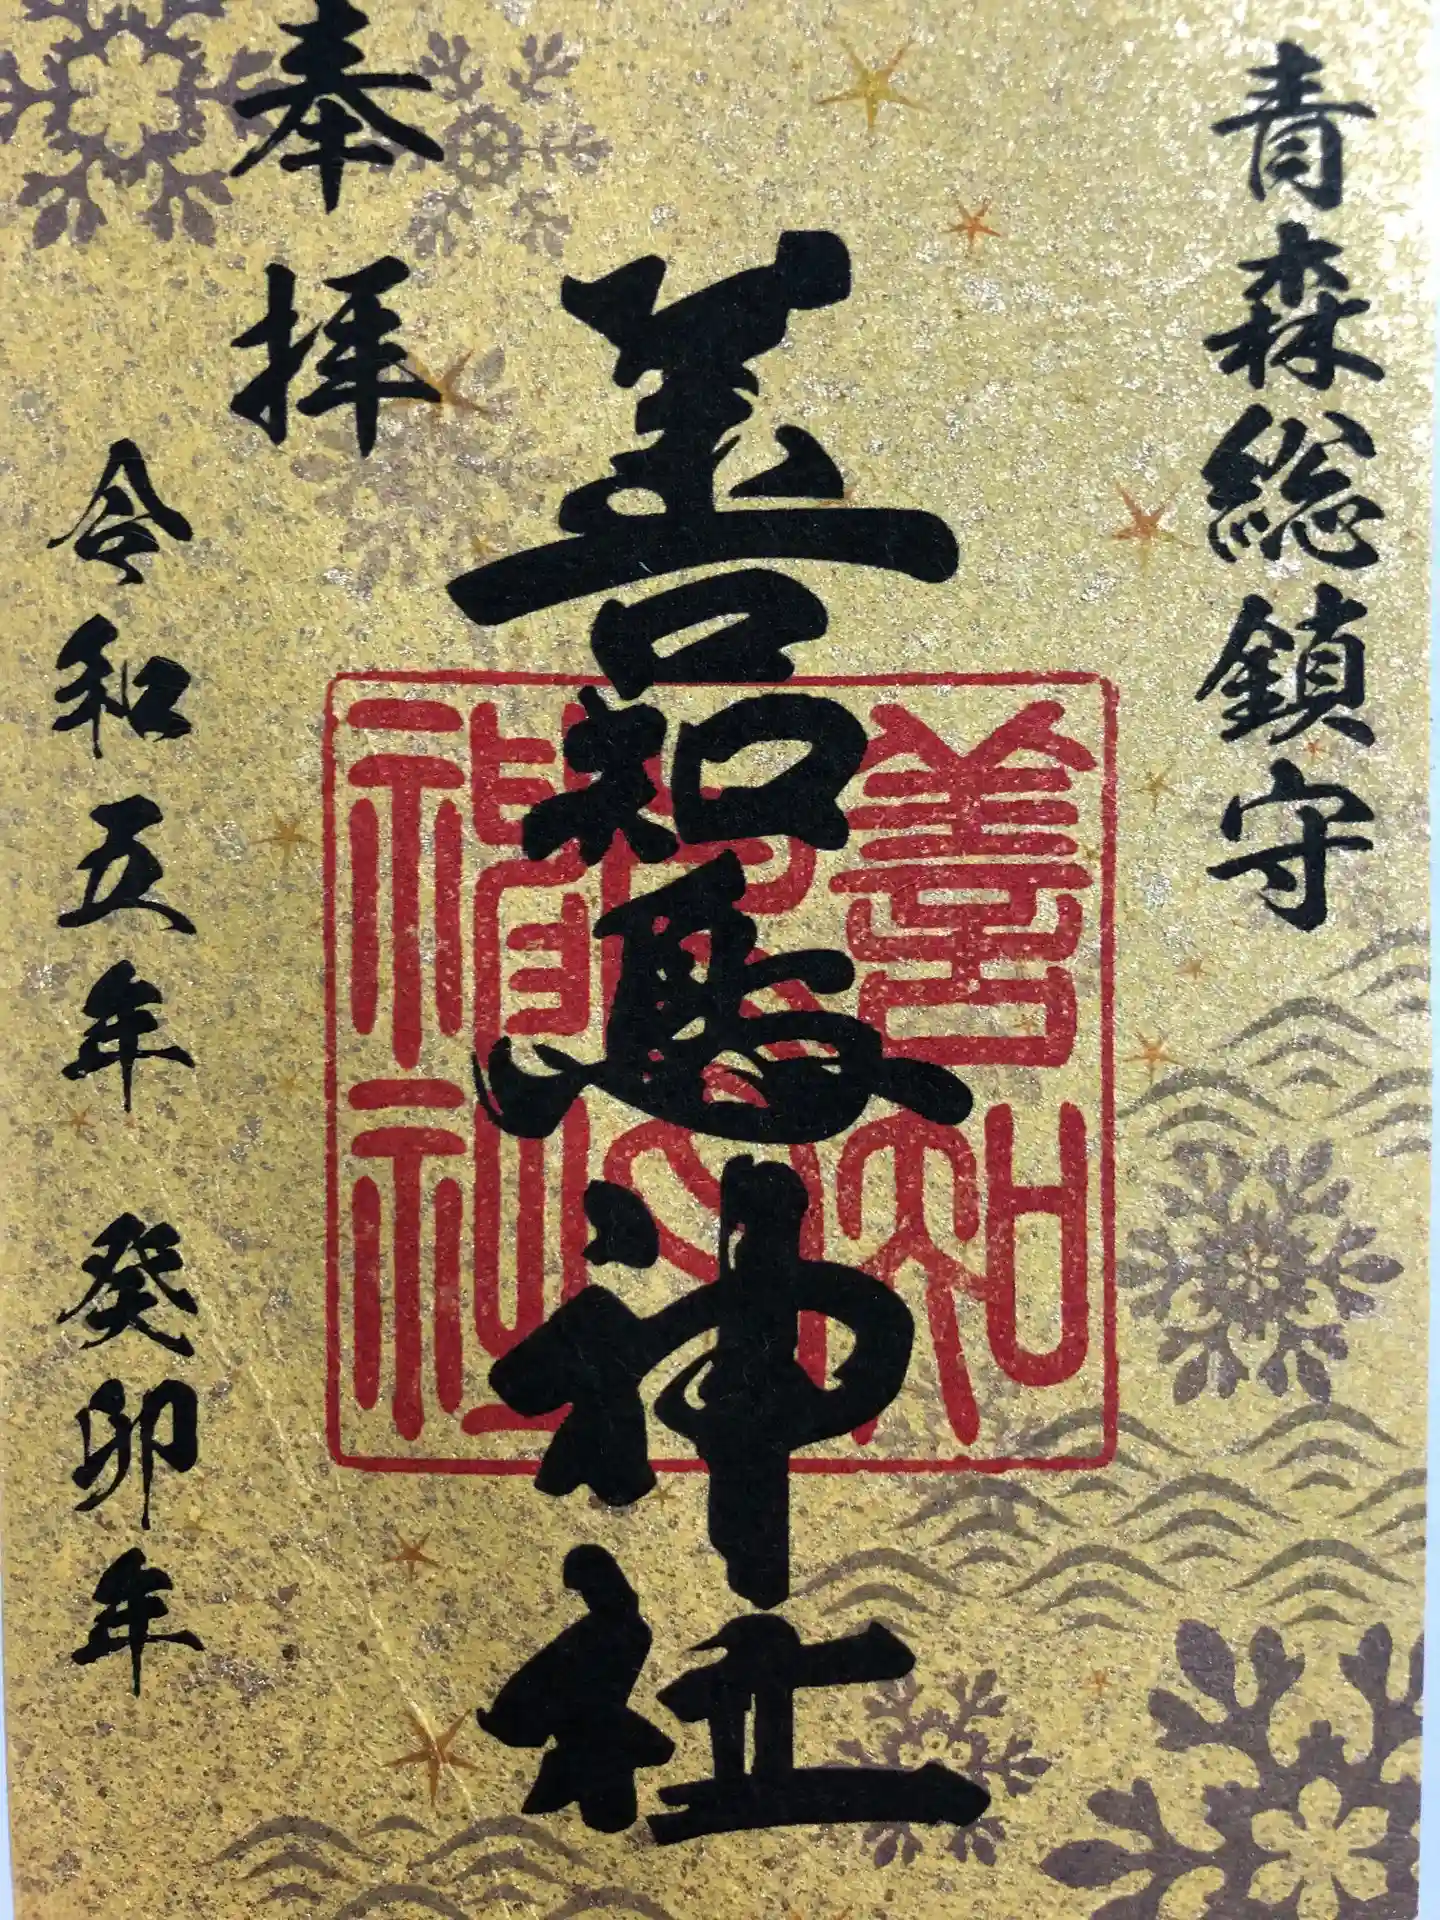 青森総鎮守
善知鳥神社
奉拝
令和五年 癸卯年
善知
鳥
神社